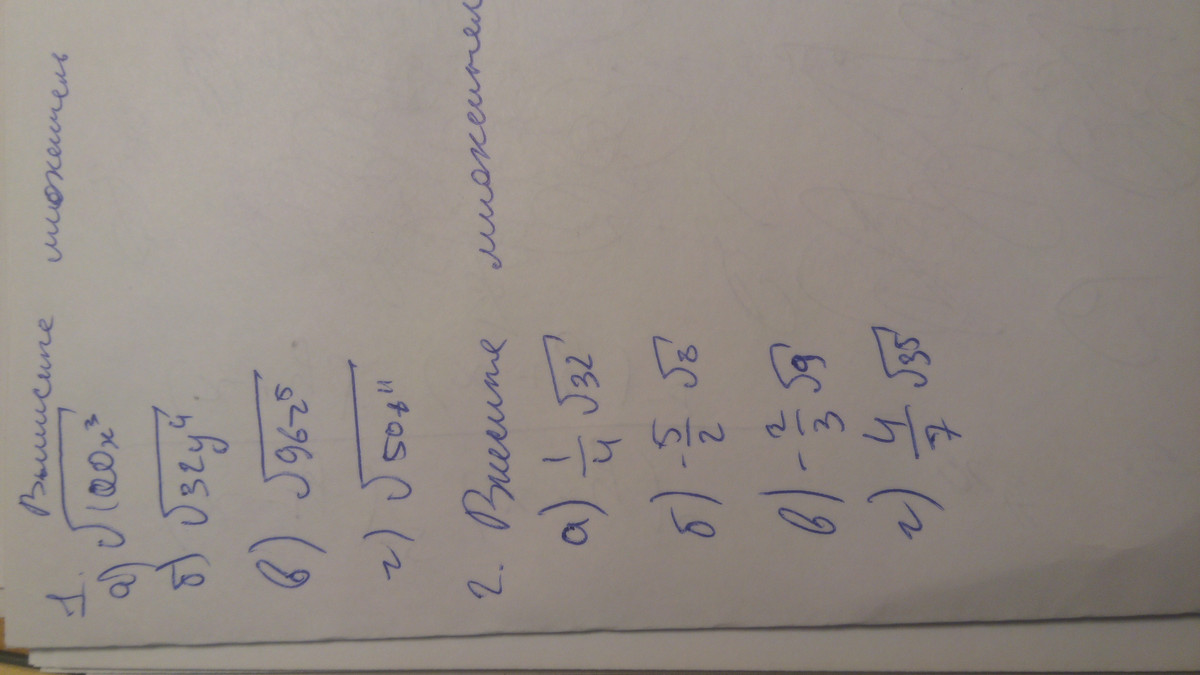 1. Вынисите множитель
а) √100x³
б) √32y⁴
в) √96z⁵
г) √50b¹¹
2. Внесите множител
а) 1/4 √32
б) -5/2 √8
в) -2/3 √9
г) 4/7 √35